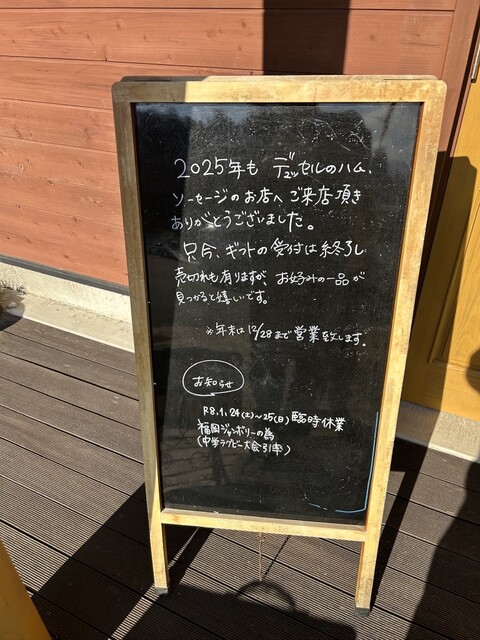 2025年も デュッセルのハム、
ソーセージのお店へご来店頂き
ありがとうございました。
只今、ギフトの受付は終了し
売切れも有りますが、お好みの一品が
見つかると嬉しいです。
※年末は12/28まで営業致します。
お知らせ
R8.1.24(土)~25(日)臨時休業
福岡ジャンボリーの為
(中学ラグビー大会引率)